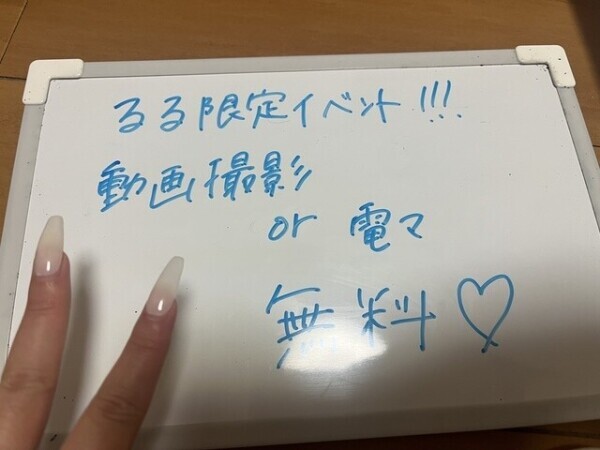 るる限定イベント!!!
動画撮影
or 電マ
無料♡